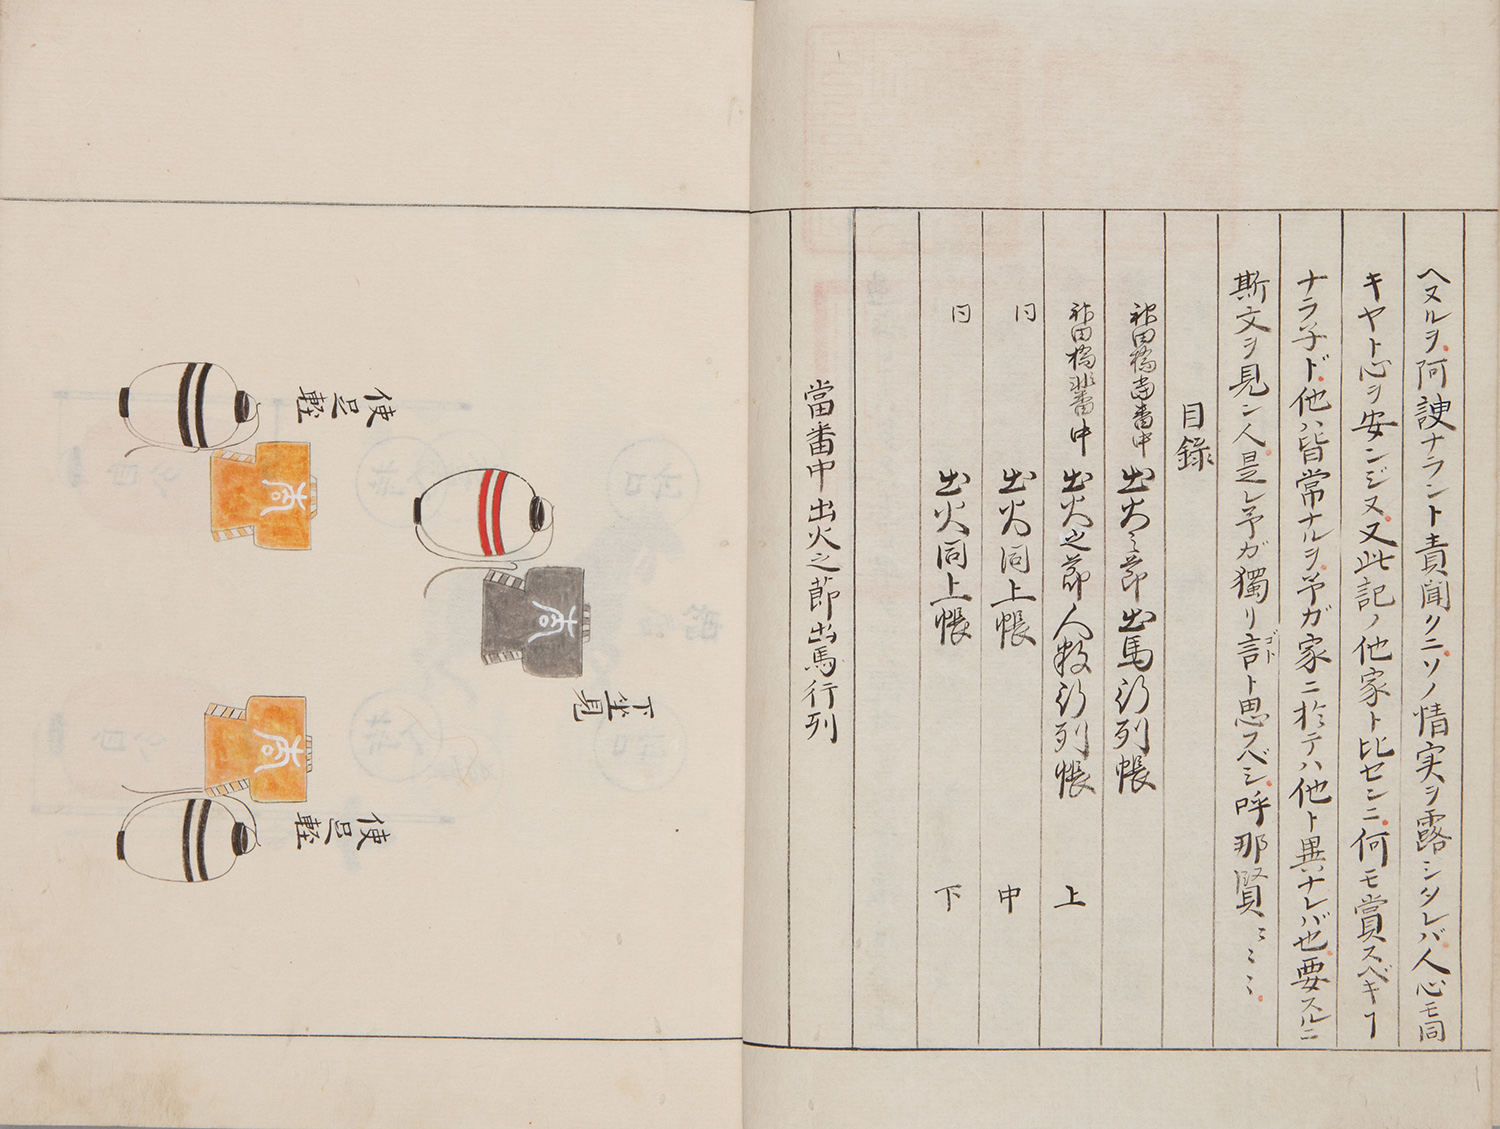 ヘヌルヲ阿諛ナラント責聞クニソノ情実ヲ露シタレバ人心モ同
キヤト心ヲ安ンジヌ又此記ノ他家ト比センニ何モ賞スベキヿ
ナラ子ド他ハ皆常ナルヲ予ガ家ニ於テハ他ト異ナレバ也要スルニ
斯文ヲ見ン人是レ予ガ獨リ言ト思フベシ呼那賢ミミミ
ゴト
目錄
神田橋当番中 出火之節出馬行列帳
神田橋非番中 出火之節人数行列帳 上
同 出火同上帳 中
同 出火同上帳 下
當番中出火之節出馬行列
下坐見
使足軽
使足軽